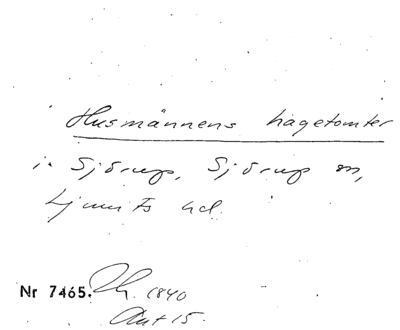 Husmännens hagetomter
i Sjörup, Sjörup sn,
Ljunits hd.
Nr 7465. 1840
Akt 15.